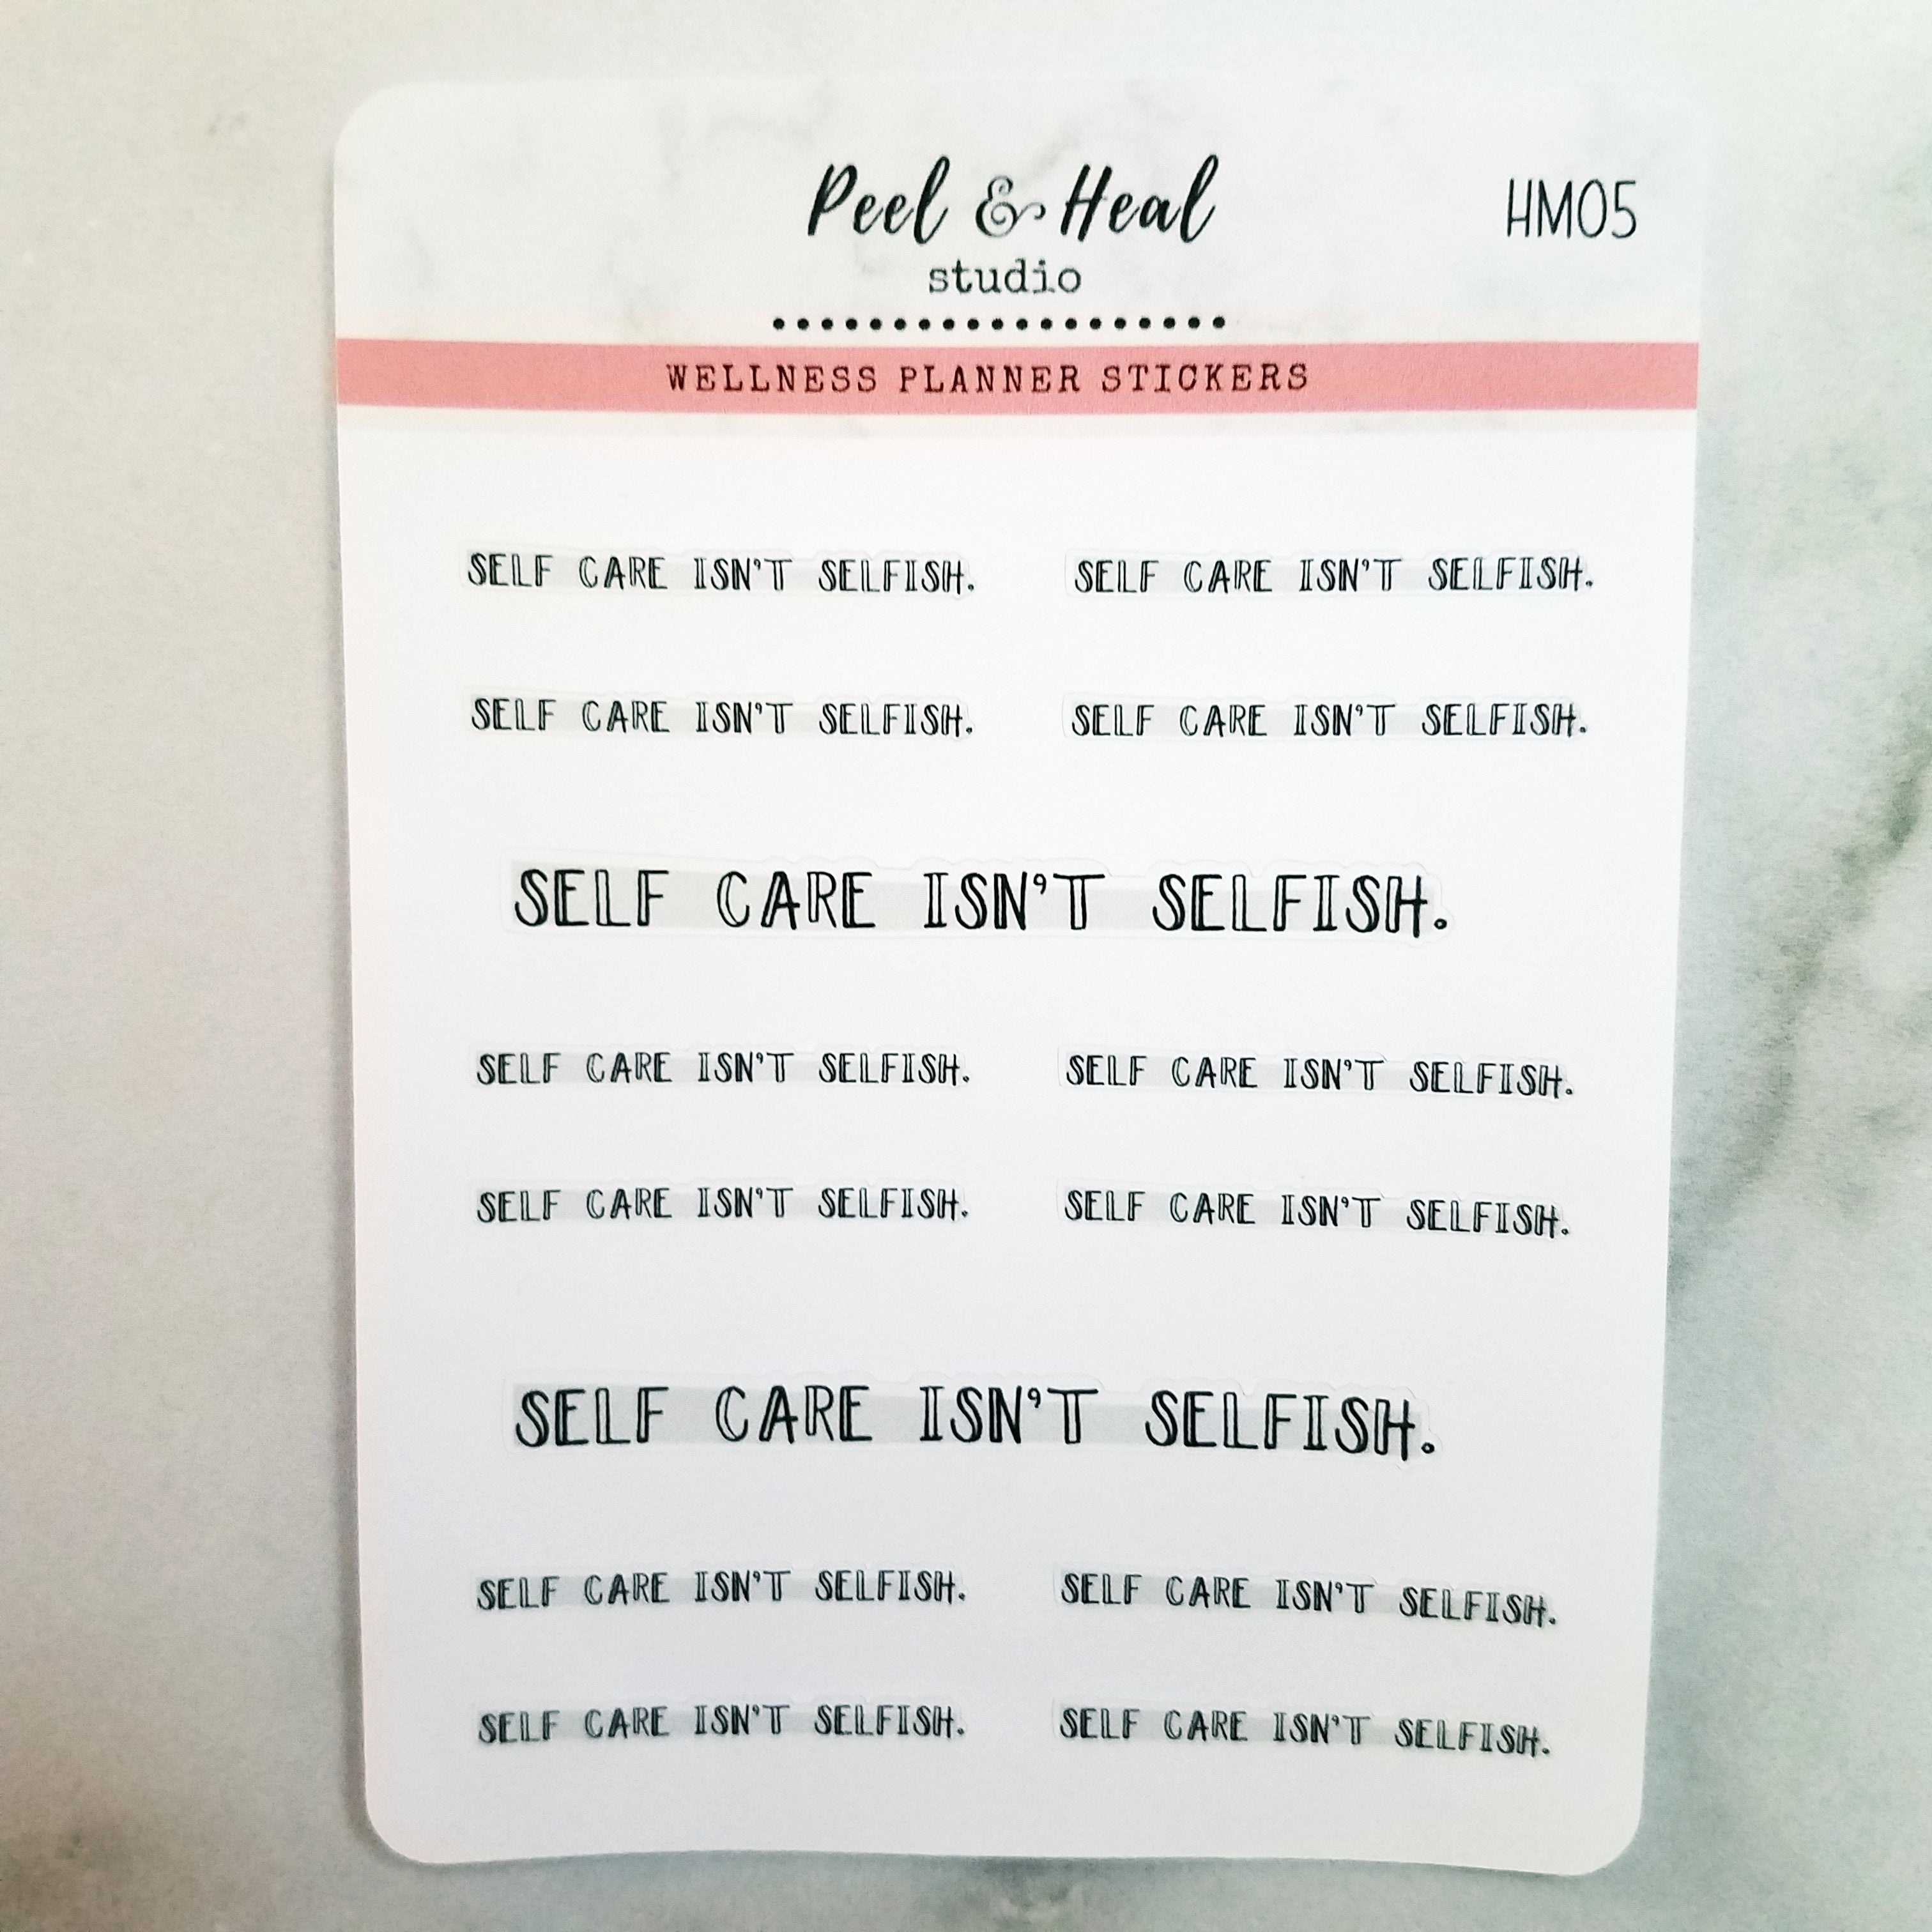 Peel & Heal
HM05
studio
WELLNESS PLANNER STICKERS
SELF CARE ISN'T SELFISH. SELF CARE ISN'T SELFISH.
SELF CARE ISN'T SELFISH. SELF CARE ISN'T SELFISH.
SELF CARE ISN'T SELFISH.
SELF CARE ISN'T SELFISH. SELF CARE ISN'T SELFISH.
SELF CARE ISN'T SELFISH. SELF CARE ISN'T SELFISH.
SELF CARE ISN'T SELFISH.
SELF CARE ISN'T SELFISH. SELF CARE ISN'T SELFISH.
SELF CARE ISN'T SELFISH. SELF CARE ISN'T SELFISH.